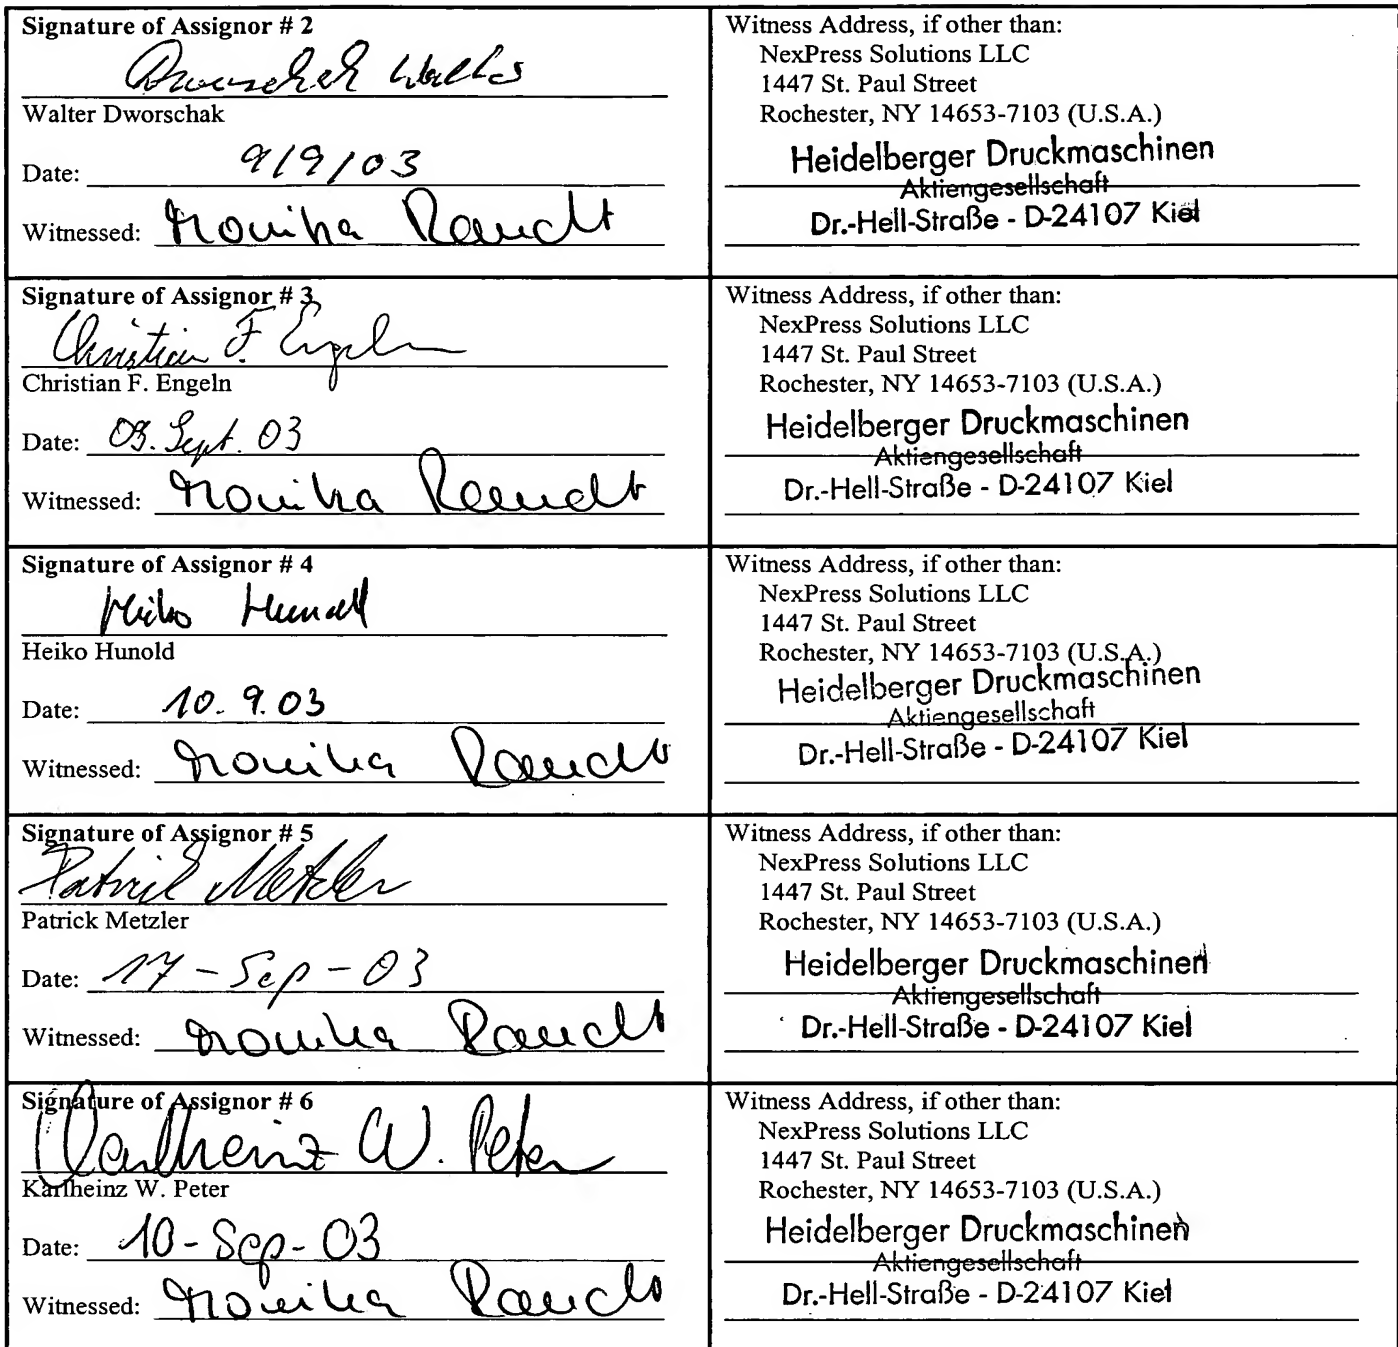 Signature of Assignor # 2
Dworschak Walter
Walter Dworschak
Date: 9/9/03
Witnessed: Monika Raudt
Witness Address, if other than:
NexPress Solutions LLC
1447 St. Paul Street
Rochester, NY 14653-7103 (U.S.A.)
Heidelberger Druckmaschinen
Aktiengesellschaft
Dr.-Hell-Straße - D-24107 Kiel
Signature of Assignor # 3
Christian F. Engeln
Christian F. Engeln
Date: 09. Sept. 03
Witnessed: Monika
Witness Address, if other than:
NexPress Solutions LLC
1447 St. Paul Street
Rochester, NY 14653-7103 (U.S.A.)
Heidelberger Druckmaschinen
Aktiengesellschaft
Dr.-Hell-Straße - D-24107 Kiel
Signature of Assignor # 4
Heiko Hunold
Heiko Hunold
Date: 10. 9. 03
Witnessed: Monika
Witness Address, if other than:
NexPress Solutions LLC
1447 St. Paul Street
Rochester, NY 14653-7103 (U.S.A.)
Heidelberger Druckmaschinen
Aktiengesellschaft
Dr.-Hell-Straße - D-24107 Kiel
Signature of Assignor # 5
Patrick Metzler
Patrick Metzler
Date: 17-Sep-03
Witnessed: Monika
Witness Address, if other than:
NexPress Solutions LLC
1447 St. Paul Street
Rochester, NY 14653-7103 (U.S.A.)
Heidelberger Druckmaschinen
Aktiengesellschaft
Dr.-Hell-Straße - D-24107 Kiel
Signature of Assignor # 6
Karlheinz W. Peter
Karlheinz W. Peter
Date: 10-Sep-03
Witnessed: Monika
Witness Address, if other than:
NexPress Solutions LLC
1447 St. Paul Street
Rochester, NY 14653-7103 (U.S.A.)
Heidelberger Druckmaschinen
Aktiengesellschaft
Dr.-Hell-Straße - D-24107 Kiel